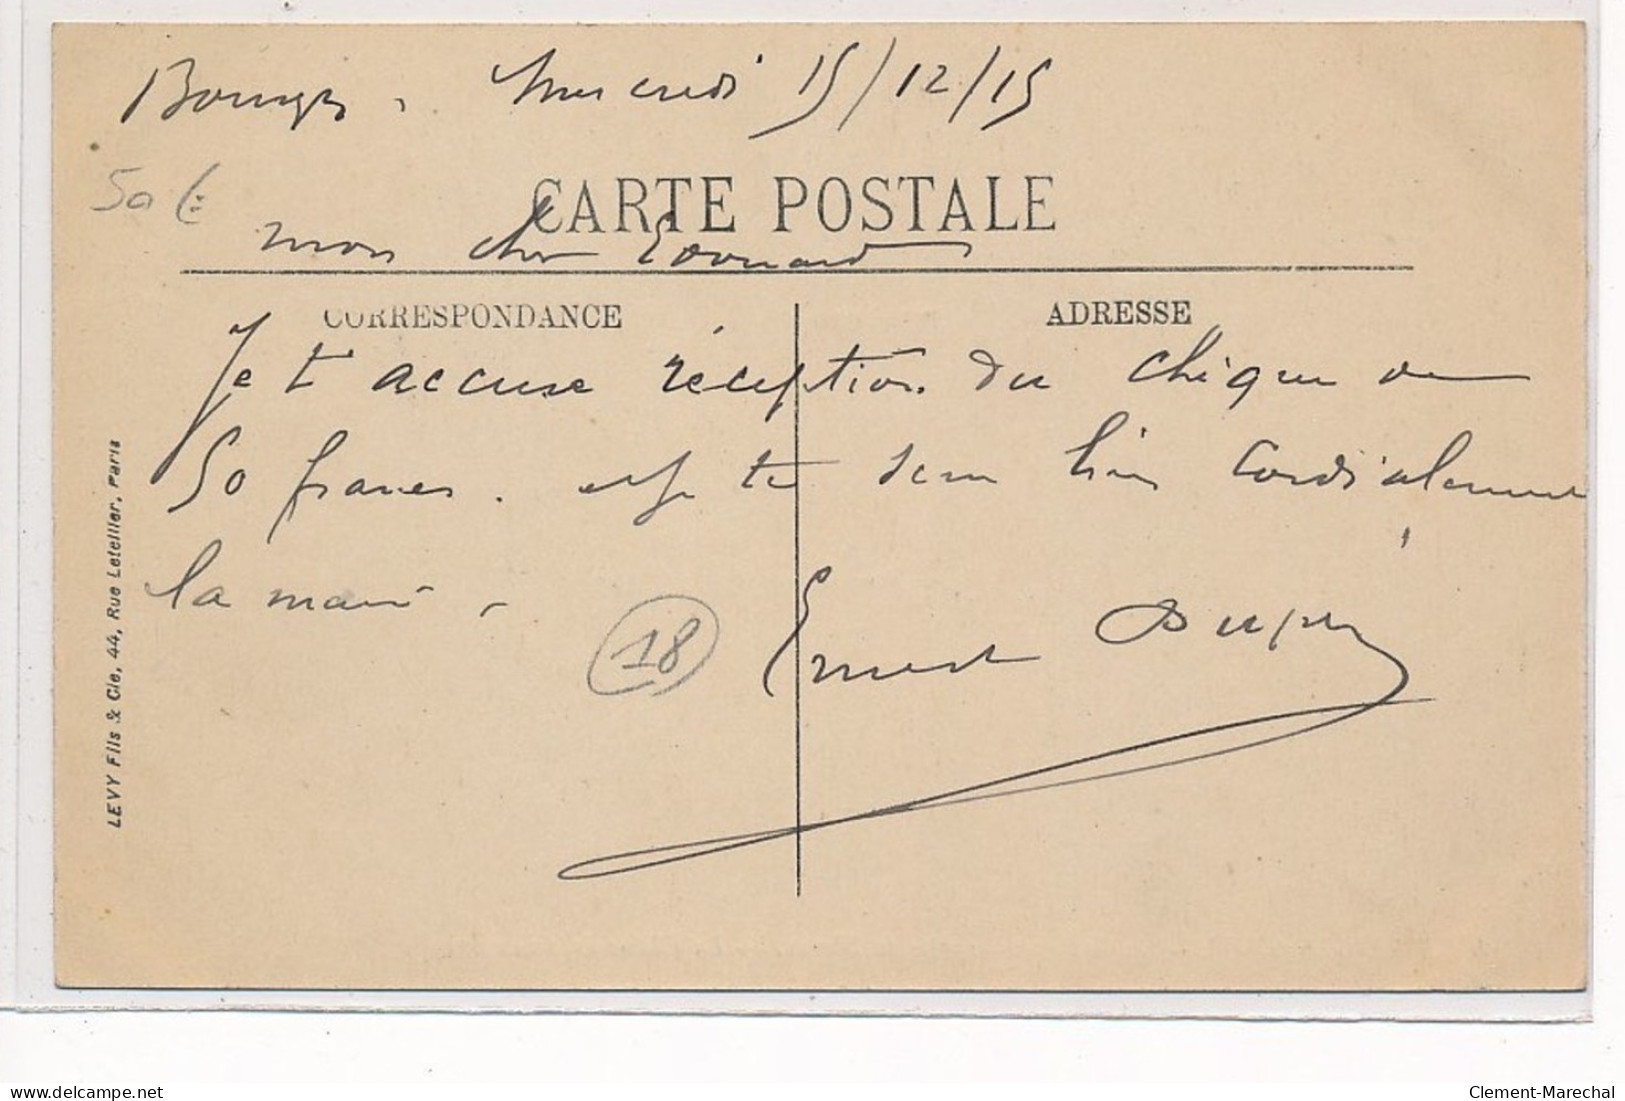 Bourges, Mercredi 15/12/15
50 €
CARTE POSTALE
mon cher Edouard
CORRESPONDANCE
ADRESSE
Je t'accuse réception du chèque de
50 francs. et je te serre bien cordialement
la main.
18
Ernest Dupuy
LEVY Fils & Cie, 44, Rue Letellier, Paris
www.delcampe.net
Clement-Marechal